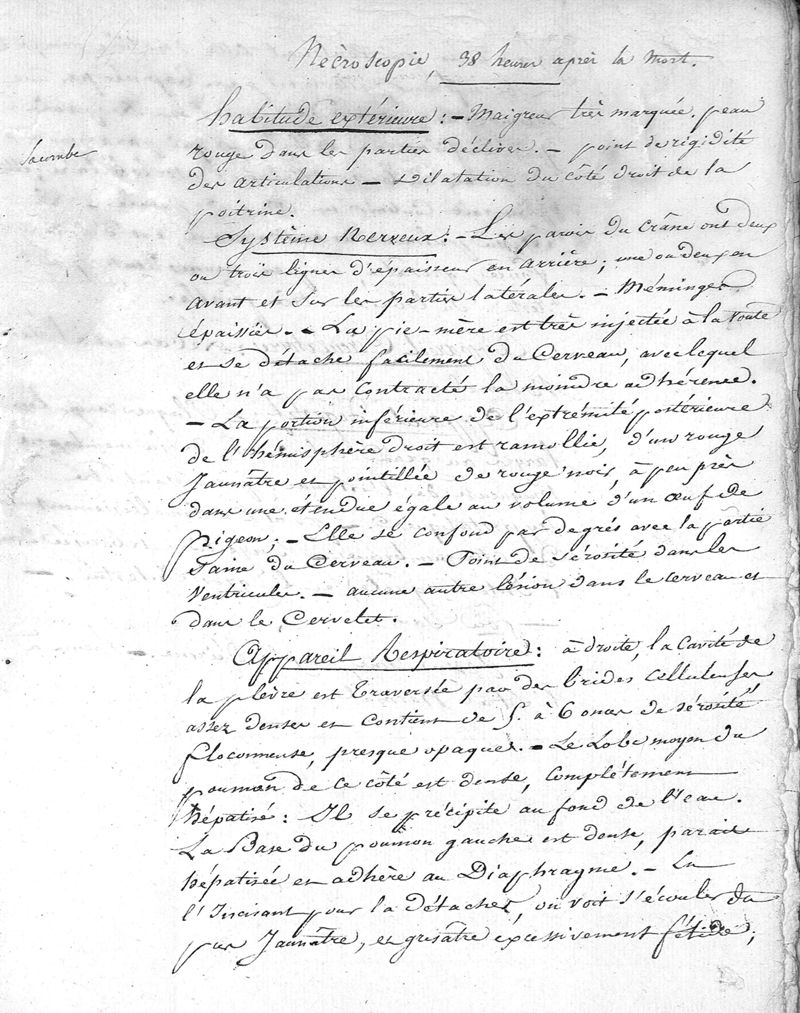 Nécroscopie, 38 heures après la mort.
habitude extérieure: - Maigreur très marquée. peau
rouge dans les parties déclives. - point de rigidité
des articulations - Dilatation du côté droit de la
poitrine.
Système Nerveux: - Les parois du crâne ont deux
ou trois lignes d'épaisseur en arrière; une ou deux en
avant et sur les parties latérales. - Méninges
épaissies. - La pie-mère est très injectée à la voute
et se détache facilement du Cerveau, avec lequel
elle n'a pas contracté la moindre adhérence.
- La portion inférieure de l'extrémité postérieure
de l'hémisphère droit est ramollie, d'un rouge
Jaunâtre et pointillée de rouge noir, à peu près
dans une étendue égale au volume d'un œuf de
pigeon; - Elle se confond par degrés avec la partie
Saine du Cerveau. - Point de Sérosité dans les
Ventricules. - aucune autre lésion dans le cerveau et
dans le Cervelet.
Appareil Respiratoire: à droite, la Cavité de
la plèvre est traversée par des brides celluleuses
assez denses et contient de 5. à 6 onces de sérosité
floconneuse, presque opaque. - Le Lobe moyen du
poumon de ce côté est dense, complétement
hépatisé: Il se précipite au fond de l'eau.
La Base du poumon gauche est dense, parait
hépatisée et adhère au Diaphragme. - En
l'Incisant pour la détacher, on voit s'écouler du
pus Jaunâtre, et grisâtre excessivement fétide;